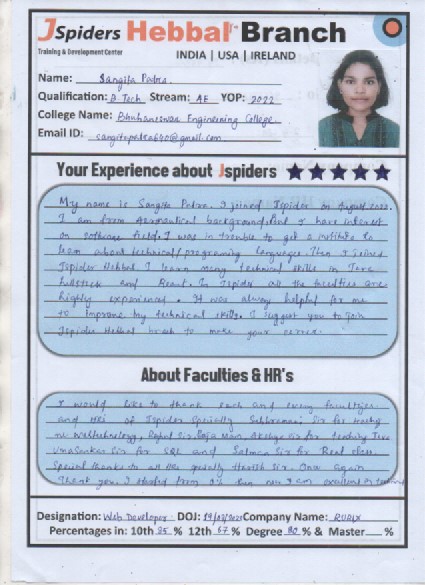 JSpiders Hebbal Branch
Training & Development Center
INDIA | USA | IRELAND
Name: Sangita Patra
Qualification: B Tech Stream: AE YOP: 2022
College Name: Bhubaneswar Engineering College
Email ID:
Your Experience about Jspiders
My name is Sangita Patra. I joined Jspider on August 2022.
I am from Aeronautical background, but I have interest
on software field. I was in trouble to get a institute to
learn about technical/programing language. Then I joined
Jspider Hebbal. I learn many technical skills in Java
fullstack and React. In Jspider all the faculties are
highly experienced. It was always helpful for me
to improve my technical skills. I suggest you to join
Jspider Hebbal to make your
About Faculties & HR's
I would like to thank each and every faculties
and HRs of Jspider Specially Sir for
me Webtechnology, Sir, Sir for teaching Java
Sir for SQL and Salman Sir for React class.
Special thanks to all HRs Sir. Once again
Thank you. I started from 0% but now I am
Designation: Web Developer DOJ: Company Name:
Percentages in: 10th 85 % 12th 67 % Degree 80 % & Master %